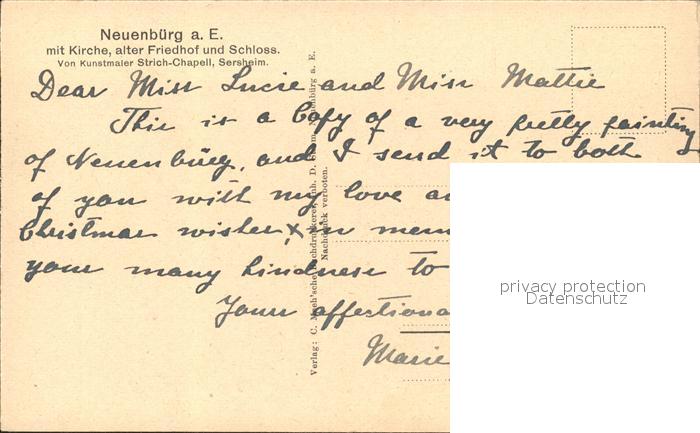 Neuenbürg a. E.
mit Kirche, alter Friedhof und Schloss.
Von Kunstmaler Strich-Chapell, Sersheim.
Dear Miss Lucie and Miss Mattie
This is a Copy of a very pretty painting
of Neuenbürg, and I send it to both
of you with my love
Christmas wishes, in
your many kindness to
Yours
Marie
Verlag: C. Buchdruckerei, Inh. D. Neuenbürg a. E.
Nachdruck verboten.
privacy protection
Datenschutz